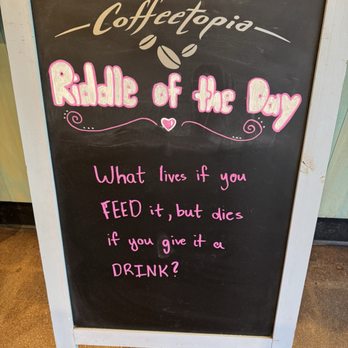 Coffeetopia
Riddle of the Day
What lives if you
FEED it, but dies
if you give it a
DRINK?